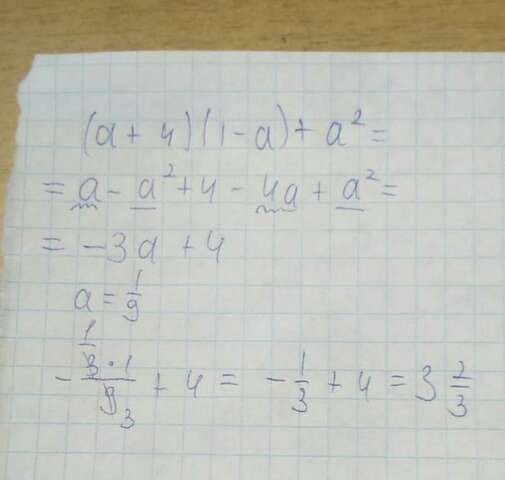 (a + 4)(1 - a) + a² =
= a - a² + 4 - 4a + a² =
= -3a + 4
a = 1/9
- (3·1)/9 + 4 = - 1/3 + 4 = 3 2/3
1
3